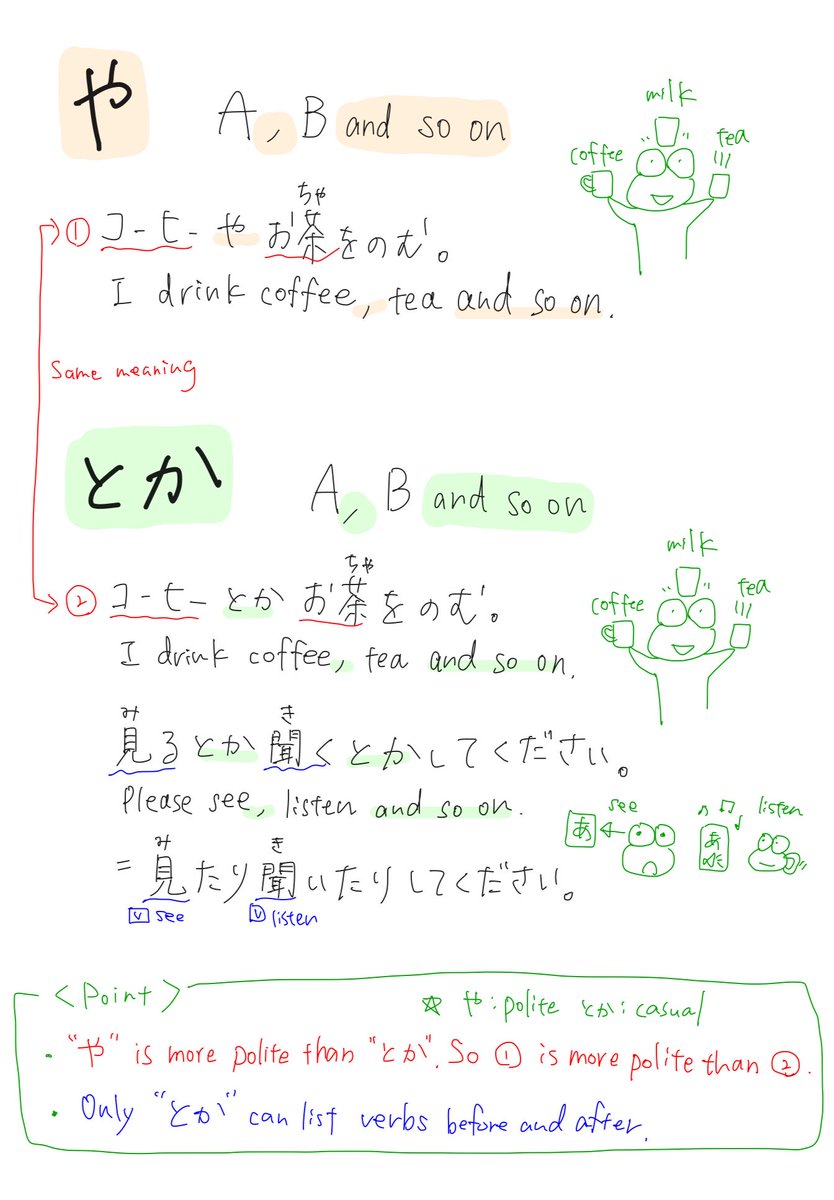 や
A, B and so on
milk
coffee
tea
ちゃ
① コーヒーやお茶をのむ。
I drink coffee, tea and so on.
Same meaning
とか
A, B and so on
milk
coffee
tea
ちゃ
② コーヒーとかお茶をのむ。
I drink coffee, tea and so on.
み き
見るとか聞くとかしてください。
Please see, listen and so on.
see
listen
あ
あ
み き
= 見たり聞いたりしてください。
V see V listen
<Point>
☆ や:polite とか:casual
・"や" is more polite than "とか". So ① is more polite than ②.
・Only "とか" can list verbs before and after.